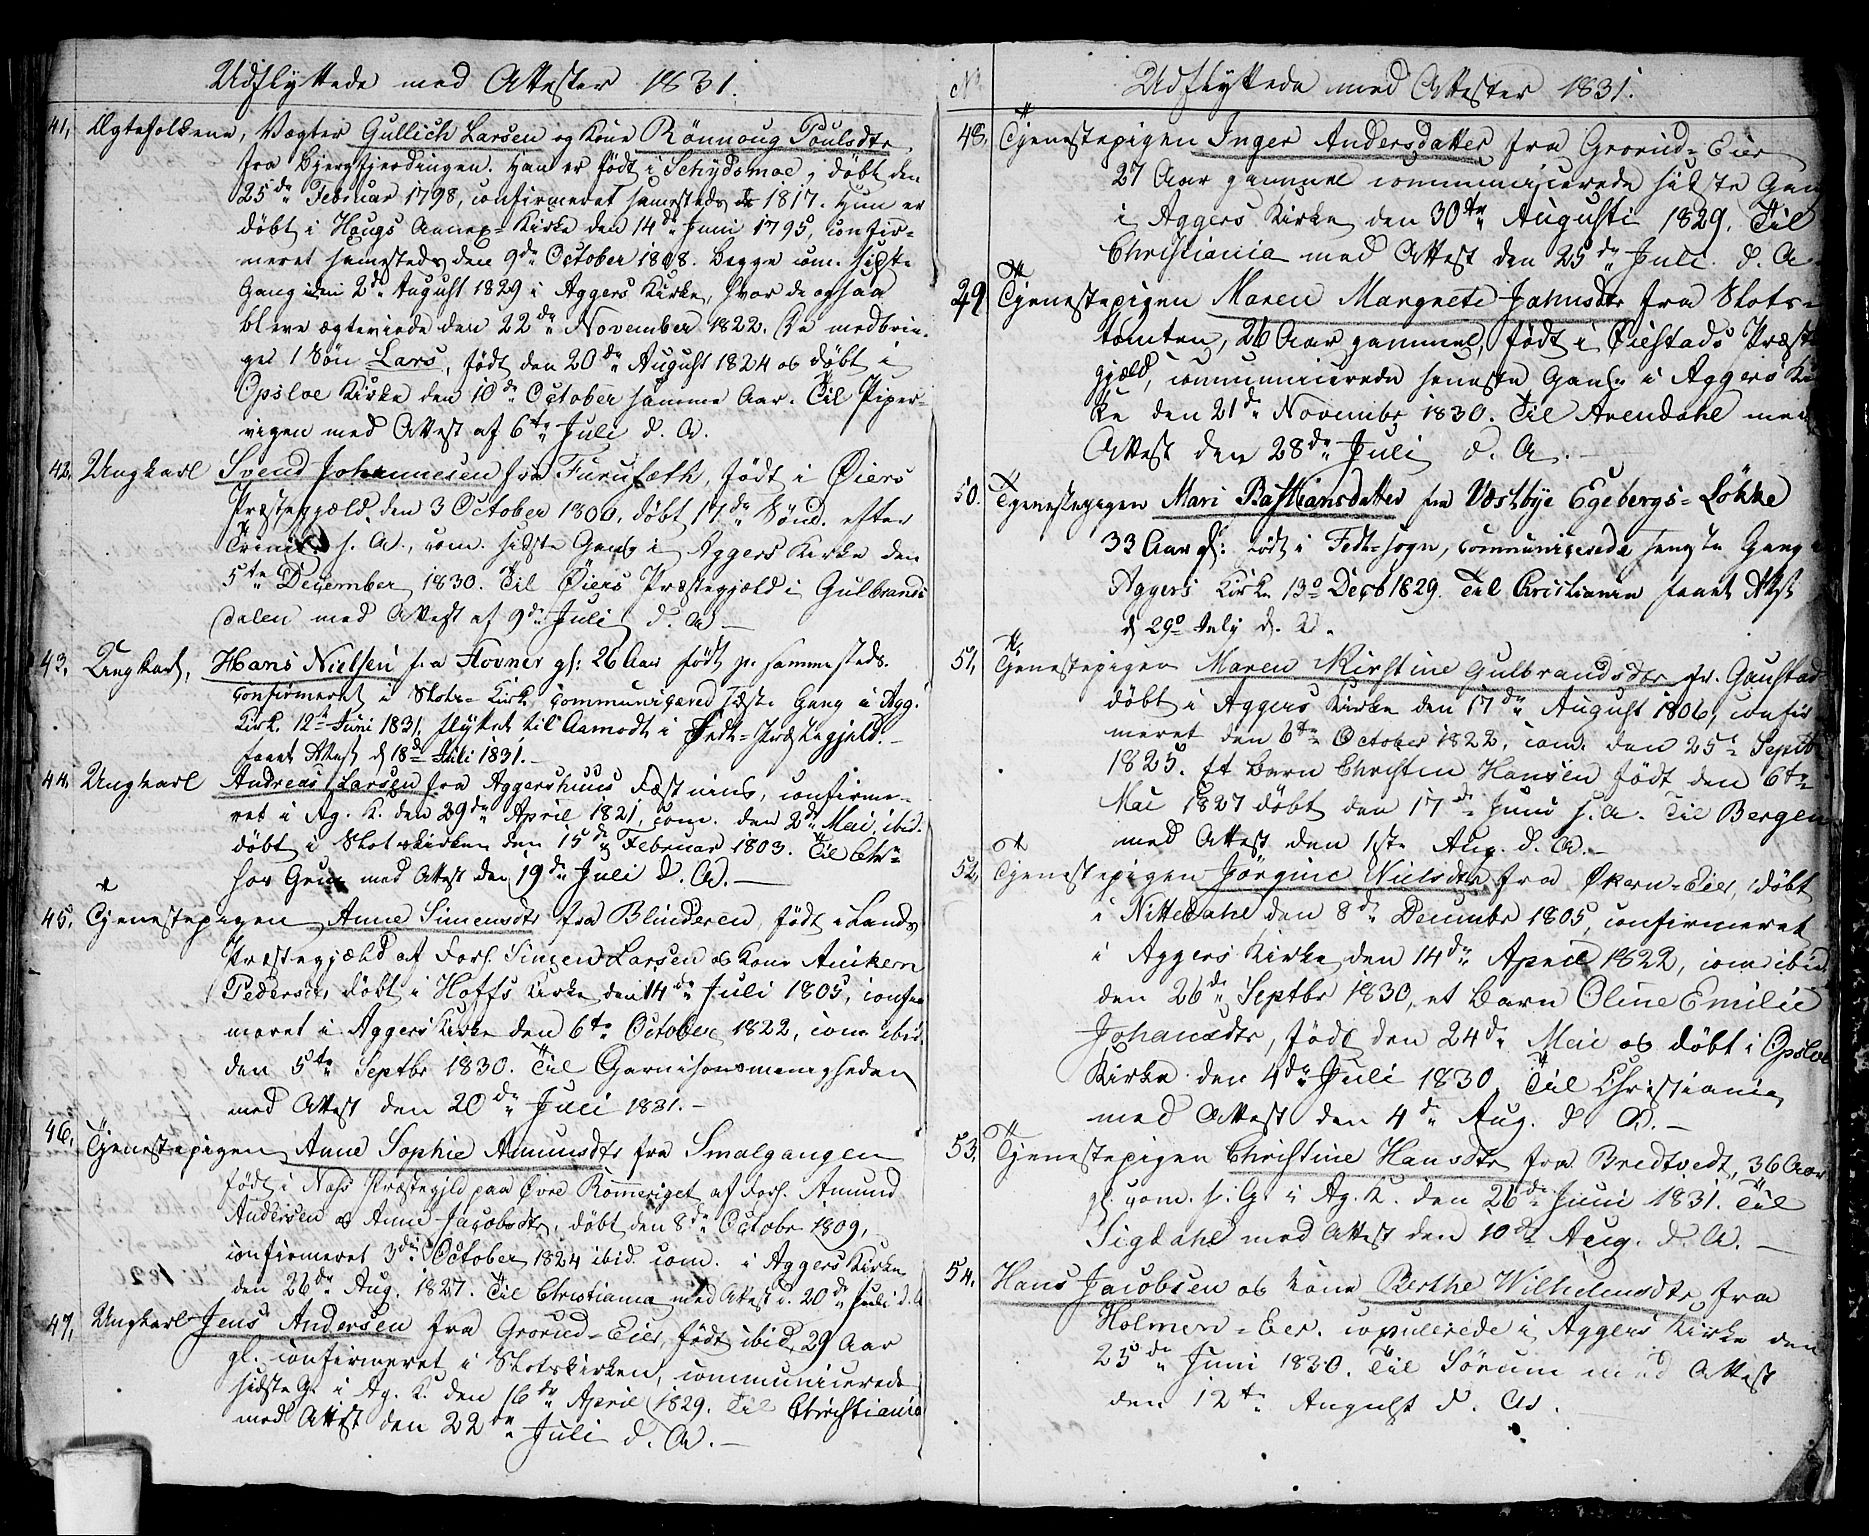 Udflyttede med Attester 1831.
41, Ægtefolkene, Vægter Gullich Larsen og Kone Rönnoug Poulsdtr,
fra Bjergfjerdingen. Han er født i Schydsmoe, døbt den
25de Februar 1798, confirmeret samesteds 1817. Hun er
døbt i Hougs Annex-Kirke den 14de Juni 1795, confir-
meret samesteds den 9de October 1808. Begge com. sidste
Gang den 2de August 1829 i Aggers Kirke, hvor de ogsaa
bleve ægteviede den 22de November 1822. De medbrin-
ger 1 Sön Lars, født den 20de August 1824 og døbt i
Opsloe Kirke den 10de October samme Aar. Til Piper-
vigen med Attest af 6te Juli d. A.
42. Ungkarl Svend Johannesen fra Furuseth, født i Øiers
Præstegjæld den 3 October 1800, døbt 17de Sönd. efter
Trinit. s. A., com. sidste Gang i Aggers Kirke den
5te December 1830. Til Øiers Præstegjæld i Gulbrands
dalen med Attest af 9de Juli d. A. –
43. Ungkarl, Hans Nielsen fra Hovner gl: 26 Aar født p. sammesteds.
confirmeret i Slots-Kirk, communicered sidste Gang i Agg.
Kirk. 12te Juni 1831, flyttet til Aamodt i Fedt-Præstegjeld. –
faaet Attest d 18de Juli 1831. –
44. Ungkarl Andreas Larsen fra Aggershuus Fæstning, confirme-
ret i Ag. K. den 29de April 1821, com. den 2de Mai, ibid.
døbt i Slotskirken den 15de Februar 1803. Til
med Attest den 19de Juli d. A. –
45. Tjenestepigen Anne Simensdtr fra Blinderen, født i Lands
Præstegjæld af Forh. Simen Larsen og Kone Anikern
Pedersdtr, døbt i Hoffs Kirke den 14de Juli 1805, confir
meret i Aggers Kirke den 6te October 1822, com ibid.
den 5te Septbr 1830. Til Garnisonsmenigheden
med Attest den 20de Juli 1831. –
46. Tjenestepigen Anne Sophie Amunsdtr fra Smalgangen
født i Næs Præstegjld paa Øvre Romeriget af Forh. Amund
Andersen og Anne Jacobsdtr, døbt den 8de Octobr 1809,
confirmeret 3die October 1824 ibid. com. i Aggers Kirke
den 26de Aug. 1827. Til Christiania med Attest d. 20de Juli d. A
47, Ungkarl Jens Andersen fra Grorud-Eier, født ibid, 29 Aar
gl. confirmeret i Slotskirken, communicerede
sidste G. i Ag. K. den 16de April 1829. Til Christiania
med Attest den 22de Juli d. A. –
No Udflyttede med Attester 1831.
48, Tjenestepigen Inger Andersdatter fra Grorud-Eier
27 Aar gammel communicerede sidste Gang
i Aggers Kirke den 30te Augusti 1829. Til
Christiania med Attest den 25de Juli d. A.
49 Tjenestepigen Maren Margrete Jahnsdtr fra Slots-
tomten, 26 Aar gammel, født i Øiestads Præste
gjæld, communicerede seneste Gang i Aggers Kir
ke den 21de Novembr 1830. Til Arendahl med
Attest den 28de Juli d. A. –
50. Tjenestepigen Mari Bastiansdatter fra Vestbye Egebergs-Løkke
33 Aar gl: født i Fedt-sogn, communicerede sengste Gang i
Aggers Kirke 13de Decb 1829. Til Christiania faaet Attest
d 29de July d. A.
51, Tjenestepigen Maren Kirstine Gulbrandsdtr fr. Gaustad
døbt i Aggers Kirke den 17de August 1806, confir
meret den 6te October 1822, com. den 25de Septbr
1825. Et Barn Christen Hansen født den 6te
Mai 1827 døbt den 17de Juni s. A. Til Bergen
med Attest den 1ste Aug. d. A. –
52, Tjenestepigen Jörgine Nielsdtr fra Økern-Eier, døbt
i Nittedahl den 8de Decembr 1805, confirmeret
i Aggers Kirke den 14de April 1822, com ibid.
den 26de Septbr 1830, et Barn Oline Emilie
Johansdtr, født den 24de Mai og døbt i Opsloe
Kirke den 4de Juli 1830. Til Christiania
med Attest den 4de Aug. d A. –
53. Tjenestepigen Christine Hansdtr fra Bredtvedt, 36 Aar
gl com. s. G. i Ag. K. den 26de Juni 1831. Til
Sigdahl med Attest den 10de Aug. d. A. –
54. Hans Jacobsen og Kone Berthe Wilhelmsdtr fra
Holmen-Eer. copulerede i Aggers Kirke den
25de Juni 1830. Til Sørum med Attest
den 12te August d. A.